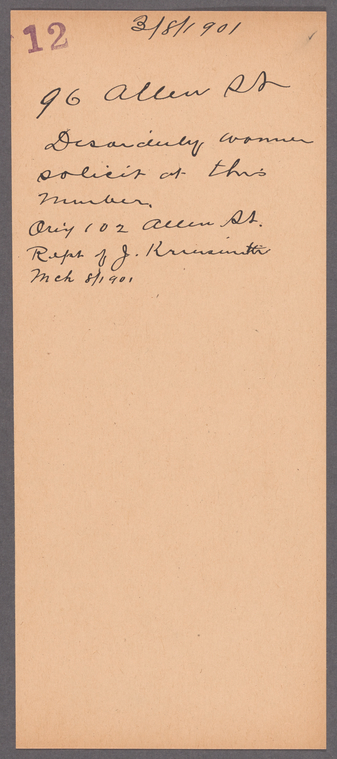 12
3/8/1901
96 Allen St
Disorderly women
solicit at this
number.
Orig 102 Allen St.
Rept of J.
Mch 8/1901